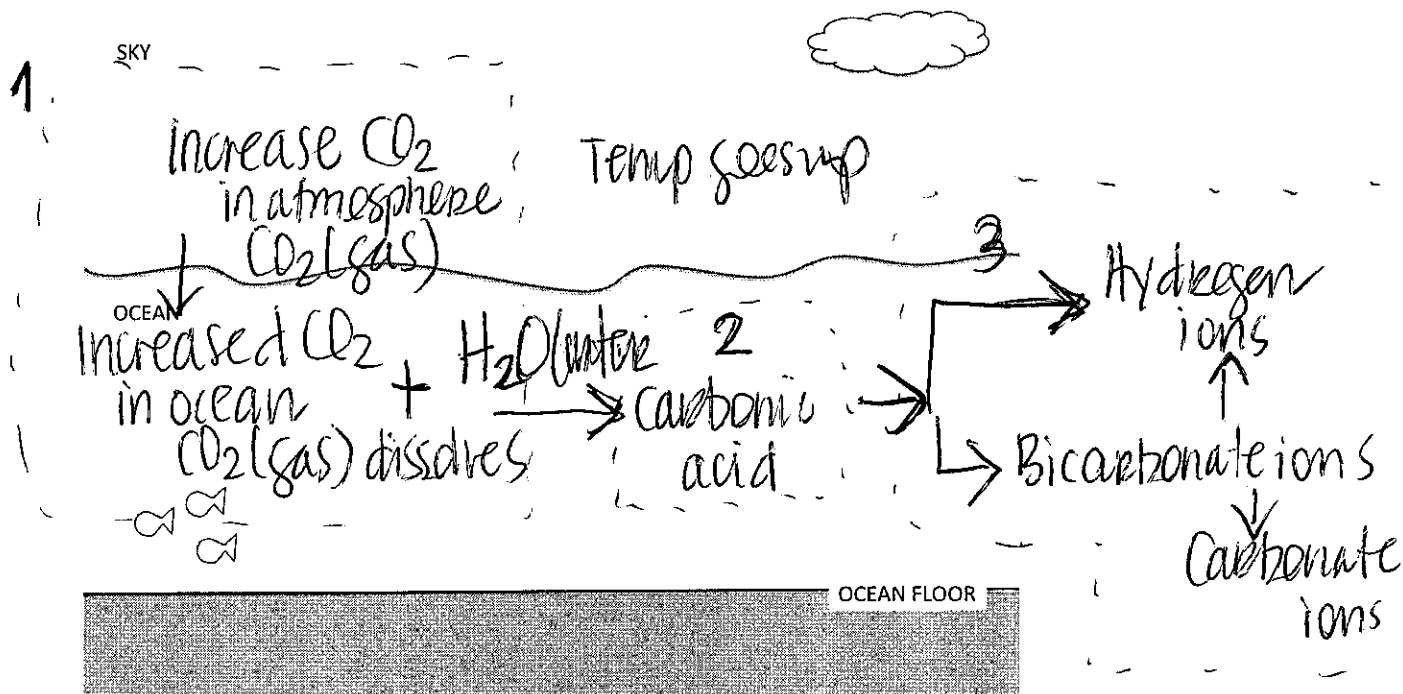 SKY
1
Increase CO2
in atmosphere
CO2(gas)
Temp goes up
3
Hydrogen
ions
OCEAN
Increased CO2
in ocean
CO2(gas) dissolves
+
H2O(water
2
Carbonic
acid
Bicarbonate ions
Carbonate
ions
OCEAN FLOOR